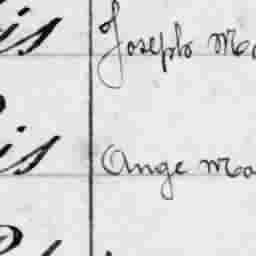 is Joseph Ma
is Ange Ma